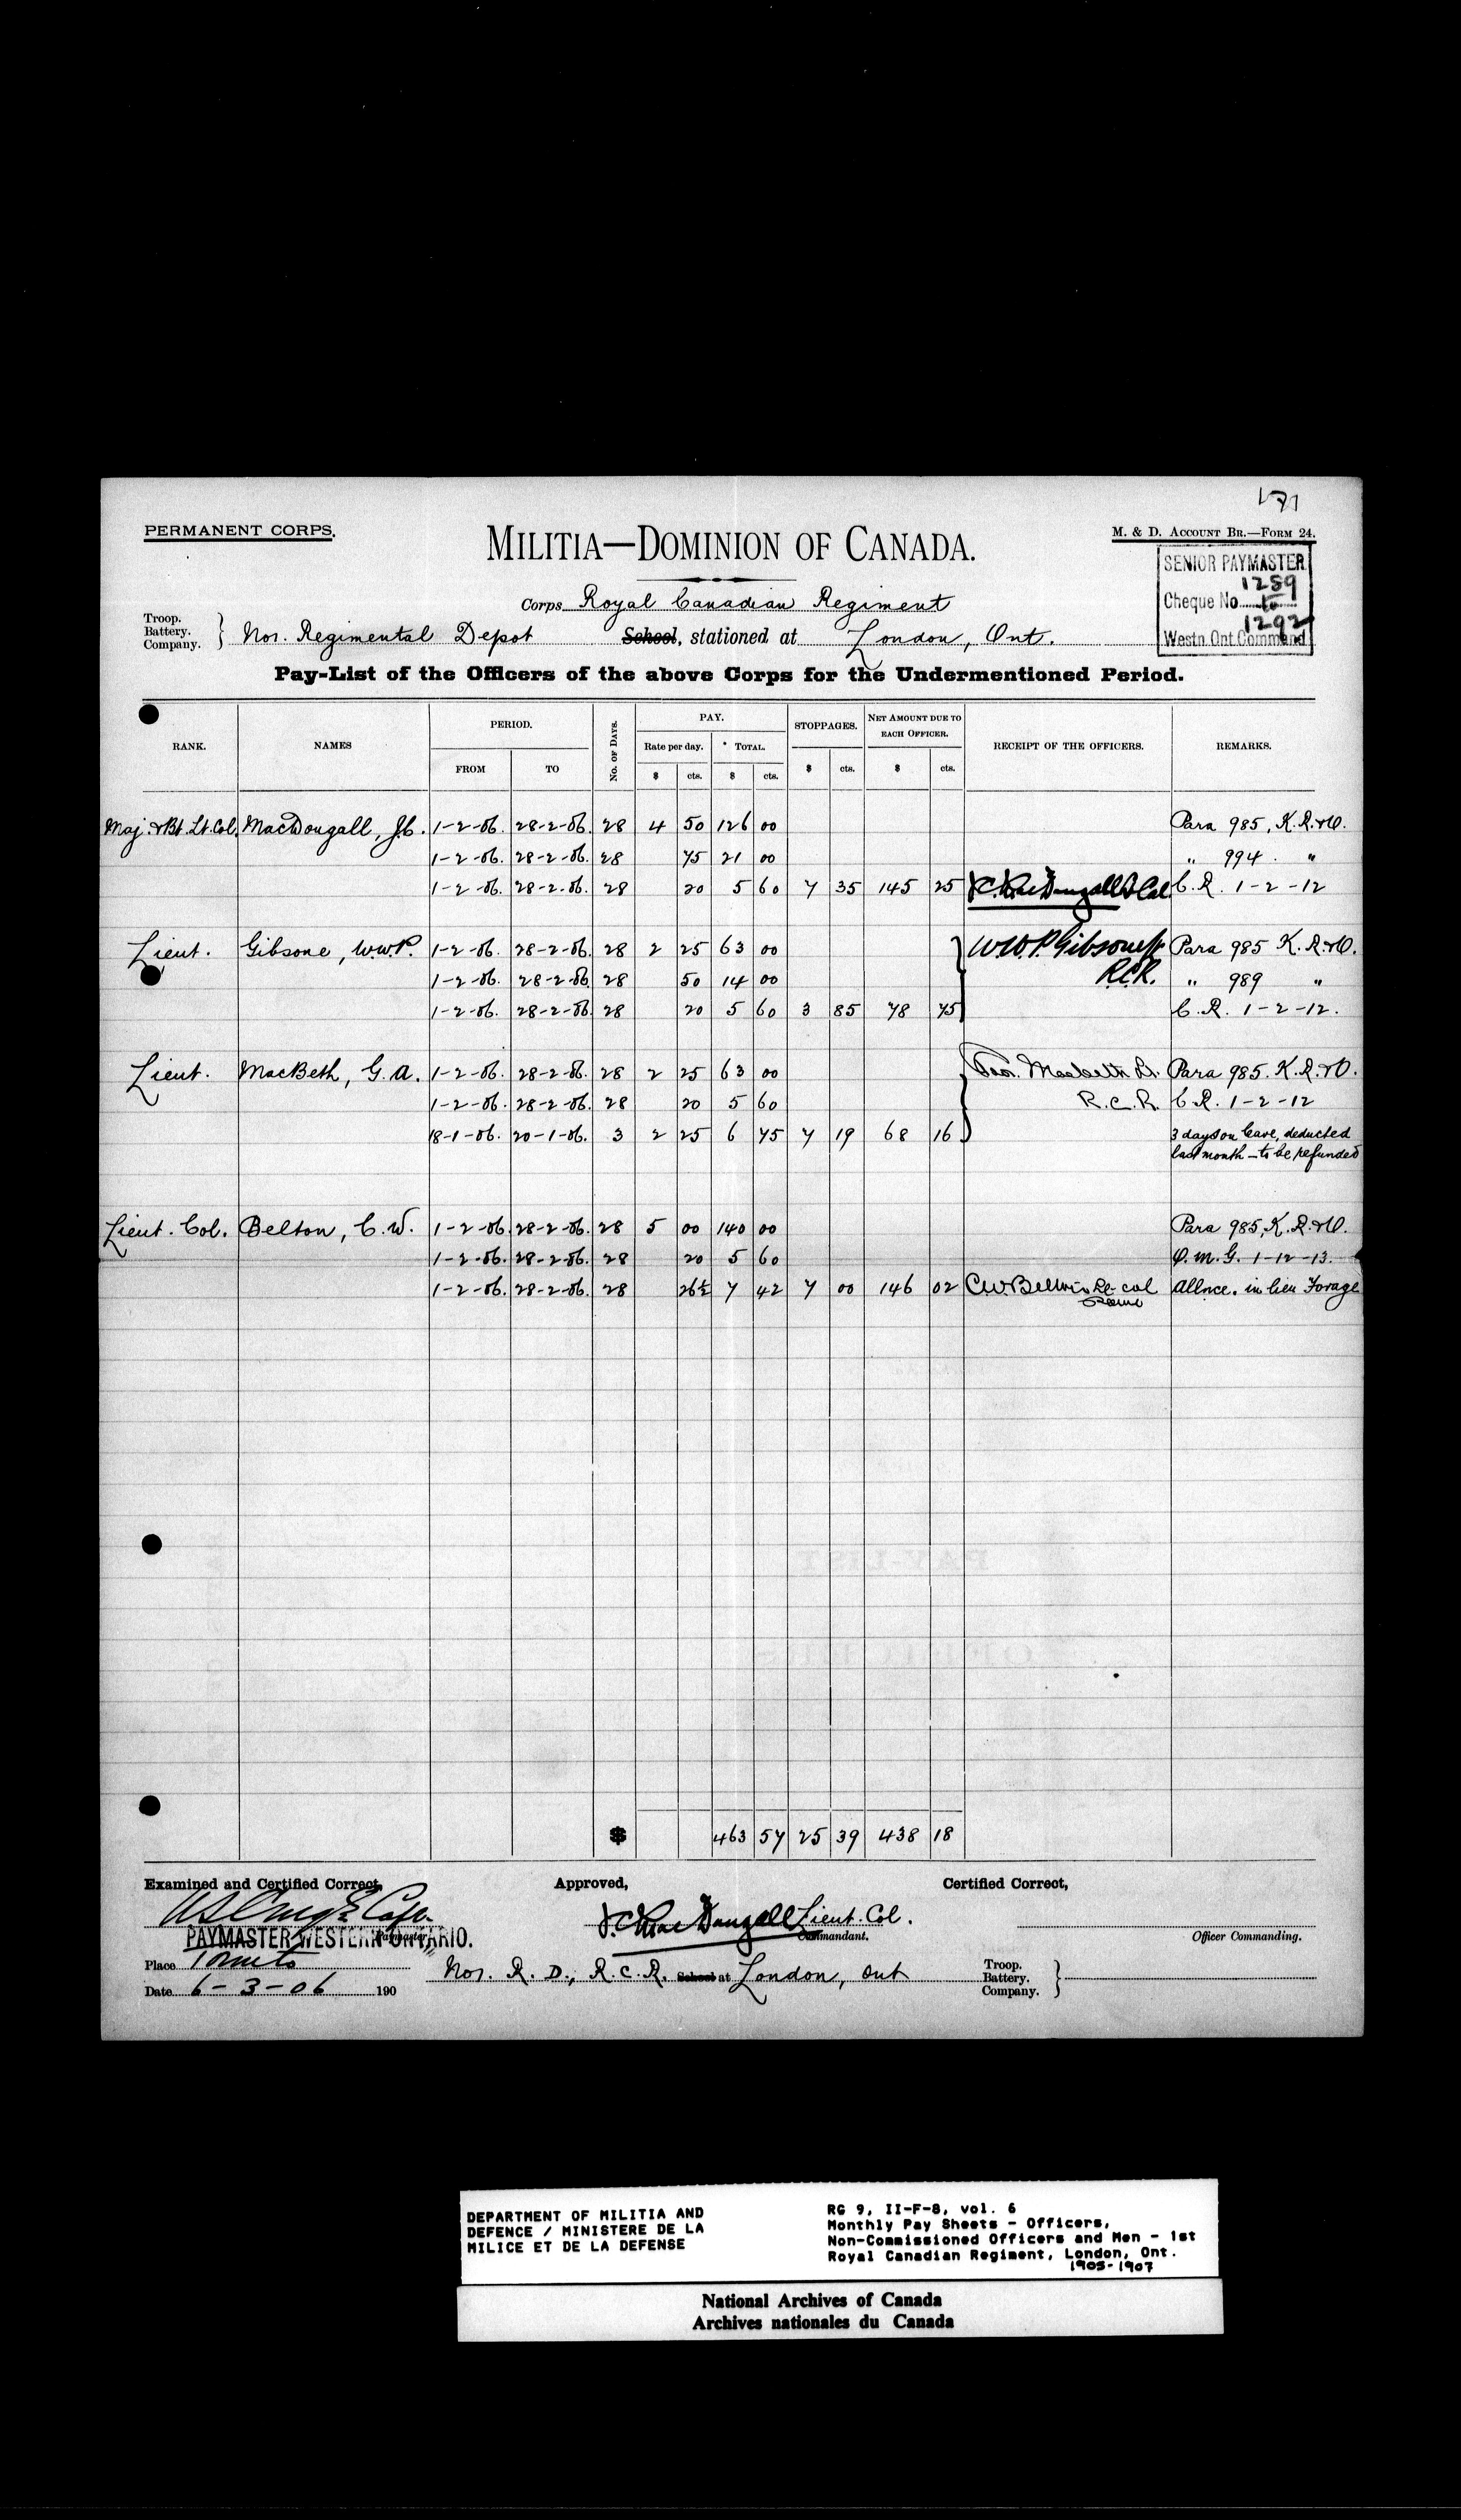 171
PERMANENT CORPS.
MILITIA—DOMINION OF CANADA.
M. & D. ACCOUNT BR.—FORM 24.
SENIOR PAYMASTER
1289
Cheque No. to
1292
Westn. Ont. Command
Corps Royal Canadian Regiment
Troop. Battery. Company. } No 1. Regimental Depot School, stationed at London, Ont.
Pay-List of the Officers of the above Corps for the Undermentioned Period.
RANK. NAMES PERIOD. FROM TO No. OF DAYS. PAY. Rate per day. $ cts. * TOTAL. $ cts. STOPPAGES. $ cts. NET AMOUNT DUE TO EACH OFFICER. $ cts. RECEIPT OF THE OFFICERS. REMARKS.
Maj. & Bt. Lt. Col. MacDougall, J.C. 1-2-06. 28-2-06. 28 4 50 126 00 Para 985, K.R.&O.
1-2-06. 28-2-06. 28 75 21 00 " 994. "
1-2-06. 28-2-06. 28 20 5 60 7 35 145 25 J.C. MacDougall Lt Col. C.R. 1-2-12
Lieut. Gibsone, W.W.P. 1-2-06. 28-2-06. 28 2 25 63 00 W.W.P. Gibsone Lt Para 985 K.R.&O.
1-2-06. 28-2-06 28 50 14 00 R.C.R. " 989 "
1-2-06. 28-2-06 28 20 5 60 3 85 78 75 C.R. 1-2-12.
Lieut. MacBeth, G.A. 1-2-06. 28-2-06. 28 2 25 63 00 Geo. Macbeth Lt. Para 985. K.R.&O.
1-2-06. 28-2-06. 28 20 5 60 R.C.R. C.R. 1-2-12
18-1-06. 20-1-06. 3 2 25 6 75 7 19 68 16 3 days on leave, deducted
last month - to be refunded
Lieut. Col. Belton, C.W. 1-2-06. 28-2-06. 28 5 00 140 00 Para 985, K.R.&O.
1-2-06. 28-2-06. 28 20 5 60 Q.M.G. 1-12-13.
1-2-06. 28-2-06. 28 26½ 7 42 7 00 146 02 C.W. Belton Lt-col Allnce. in lieu Forage
$ 463 57 25 39 438 18
Examined and Certified Correct, Approved, Certified Correct,
J.C. MacDougall Lieut. Col.
PAYMASTER WESTERN ONTARIO. Paymaster, Commandant. Officer Commanding.
Place Toronto
No 1. R. D., R.C.R. School at London, Ont Troop. Battery. Company. }
Date 6-3-06 190
DEPARTMENT OF MILITIA AND
DEFENCE / MINISTERE DE LA
MILICE ET DE LA DEFENSE
RG 9, II-F-8, vol. 6
Monthly Pay Sheets - Officers,
Non-Commissioned Officers and Men - 1st
Royal Canadian Regiment, London, Ont.
1905-1907
National Archives of Canada
Archives nationales du Canada